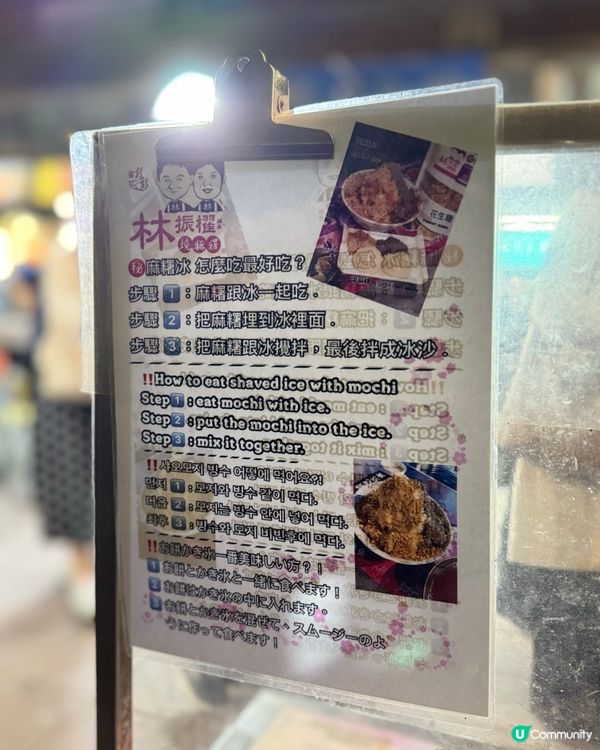 林振櫂
燒麻糬
秘 麻糬冰 怎麼吃最好吃？
步驟 1：麻糬跟冰一起吃．
步驟 2：把麻糬埋到冰裡面．
步驟 3：把麻糬跟冰攪拌，最後拌成冰沙．
!!How to eat shaved ice with mochi
Step 1 : eat mochi with ice.
Step 2 : put the mochi into the ice.
Step 3 : mix it together.
!!샤오모지 빙수 어떻에 먹어요?!
먼저 1 : 모지와 빙수 같이 먹다.
다음 2 : 모지는 빙수 안에 넣어 먹다.
최후 3 : 빙수와 모지 비빈후에 먹다.
!!お餅かき氷一番美味しい方？！
1 お餅とかき氷と一緒に食べます！
2 お餅はかき氷の中に入れます。
3 お餅とかき氷を混ぜて、スムージーのよ
うに作って食べます！
花生糖
U Community